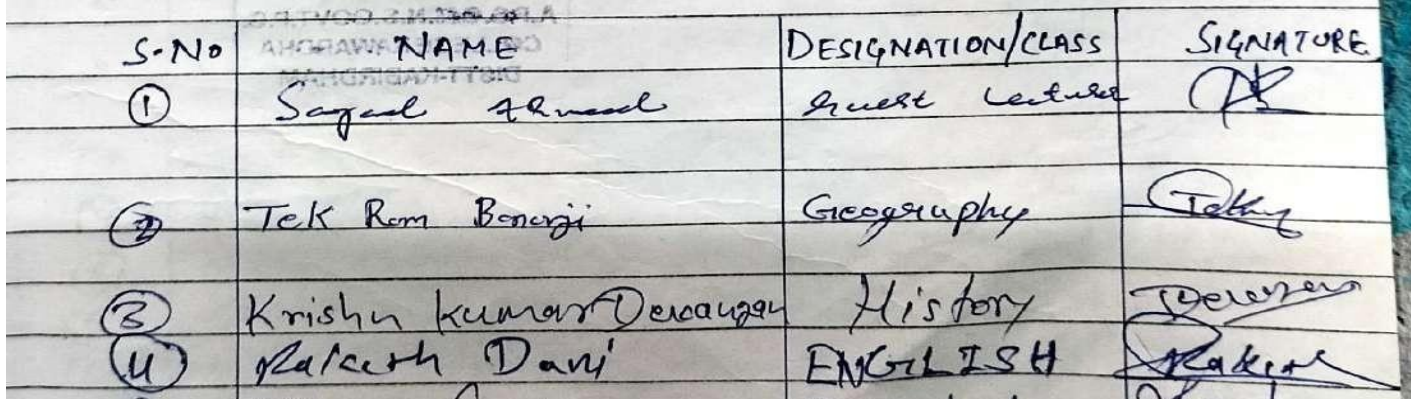 S.No NAME DESIGNATION/CLASS SIGNATURE
① Sayad Ahmad Guest Lecturer
② Tek Ram Banerji Geography
③ Krishn Kumar Dewangan History Dewangan
④ Rakesh Dani ENGLISH Rakesh